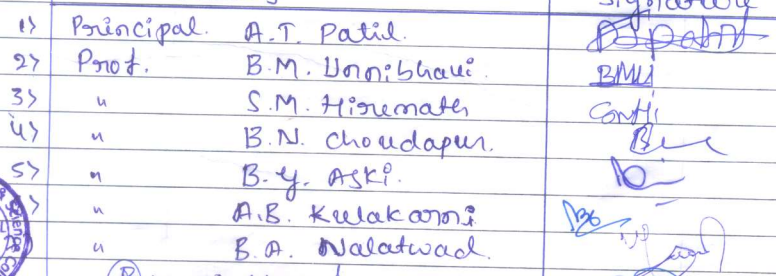 Signature
1) Principal. A.T. Patil.
2) Prof. B.M. Unnibhavi.
3) " S.M. Hiremath
4) " B.N. Choudapur.
5) " B.Y. Aski.
" A.B. Kulakarni
" B.A. Nalatwad.